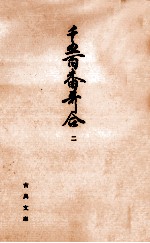 千五百番歌合
二
古典文庫